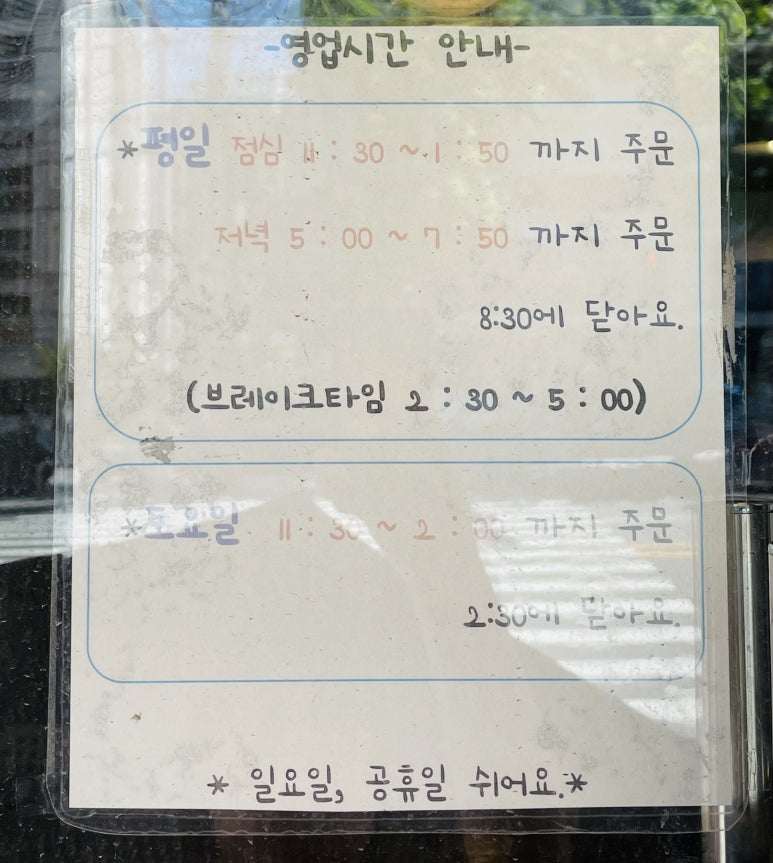 -영업시간 안내-
*평일 점심 11 : 30 ~ 1 : 50 까지 주문
저녁 5 : 00 ~ 7 : 50 까지 주문
8:30에 닫아요.
(브레이크타임 2 : 30 ~ 5 : 00)
*토요일 11 : 30 ~ 2 : 00 까지 주문
2:30에 닫아요.
* 일요일, 공휴일 쉬어요.*